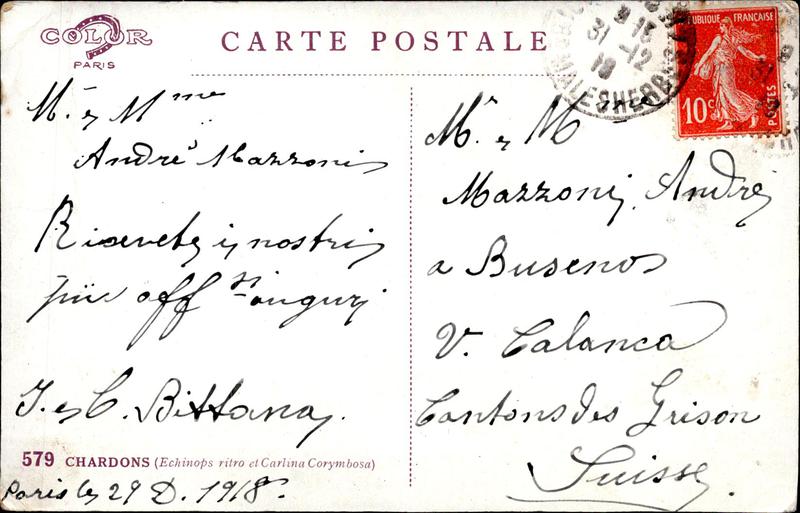 COLOR
PARIS
CARTE POSTALE
RÉPUBLIQUE FRANÇAISE
10c
POSTES
15
31-12
18
MALESHERBES
Mr & Mme
André Mazzoni
Ricevete i nostri
più aff si auguri
J. et C. Bittana
579 CHARDONS (Echinops ritro et Carlina Corymbosa)
Paris le 29 D. 1918.
Mr & Mme
Mazzoni, André
a Buseno
V. Calanca
Canton des Grison
Suisse.